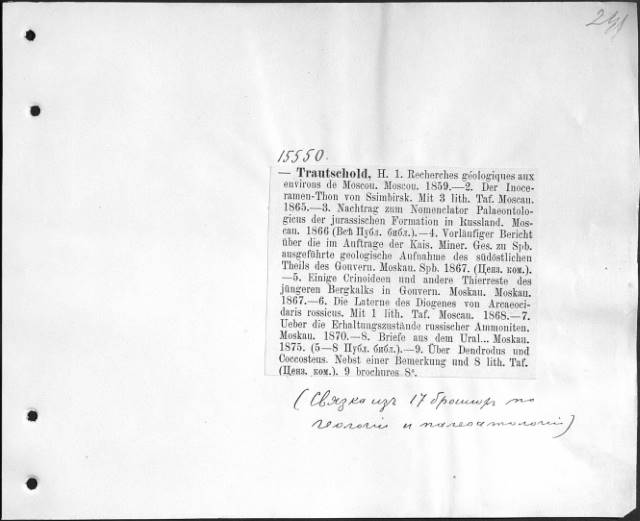 15550.
— Trautschold, H. 1. Recherches géologiques aux
environs de Moscou. Moscou. 1859.—2. Der Inoce-
ramen-Thon von Ssimbirsk. Mit 3 lith. Taf. Moscau.
1865.—3. Nachtrag zum Nomenclator Palaeontolo-
gicus der jurassischen Formation in Russland. Mos-
cau. 1866 (Всѣ Публ. библ.).—4. Vorläufiger Bericht
über die im Auftrage der Kais. Miner. Ges. zu Spb.
ausgeführte geologische Aufnahme des südöstlichen
Theils des Gouvern. Moskau. Spb. 1867. (Ценз. ком.).
—5. Einige Crinoideen und andere Thierreste des
jüngeren Bergkalks in Gouvern. Moskau. Moskau.
1867.—6. Die Laterne des Diogenes von Arcaeoci-
daris rossicus. Mit 1 lith. Taf. Moscau. 1868.—7.
Ueber die Erhaltungszustände russischer Ammoniten.
Moskau. 1870.—8. Briefe aus dem Ural... Moskau.
1875. (5—8 Публ. библ.).—9. Über Dendrodus und
Coccosteus. Nebst einer Bemerkung und 8 lith. Taf.
(Ценз. ком.). 9 brochures 8°.
(Связка изъ 17 брошюръ по
геологіи и палеонтологіи)